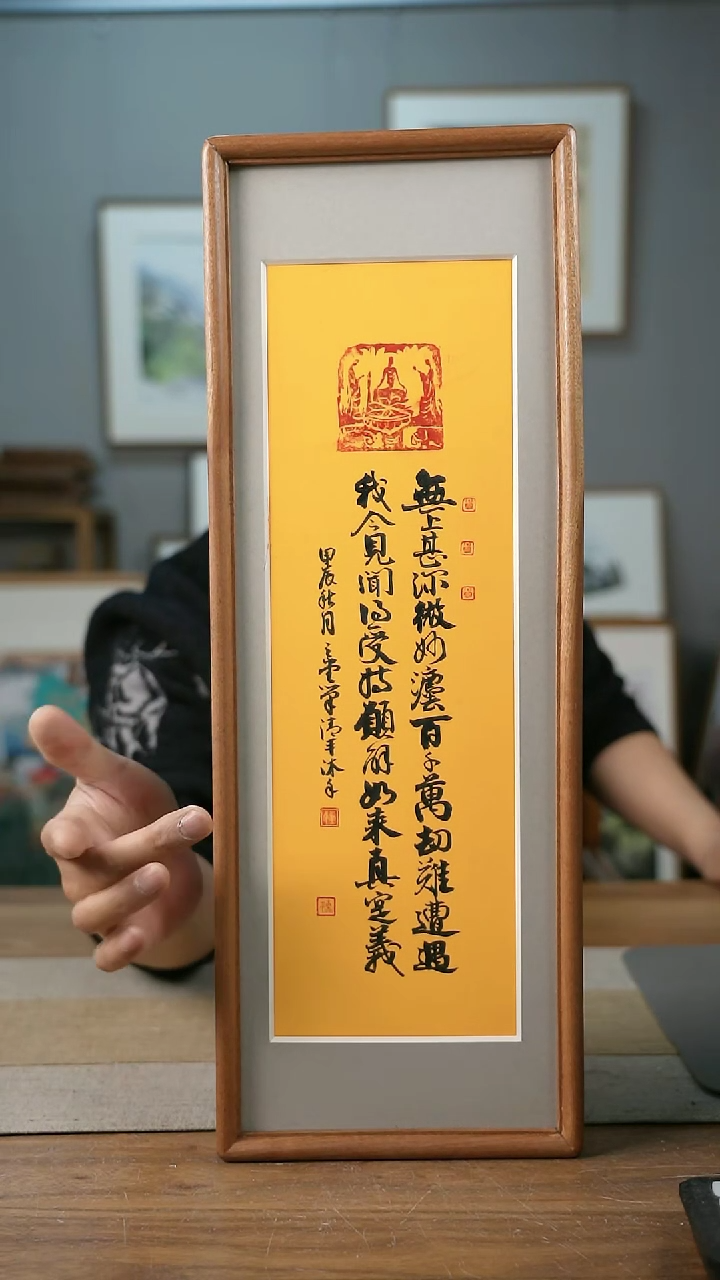 無上甚深微妙灋百千萬劫難遭遇
我今見聞得受持願解如来真實義
甲辰秋月
沐手